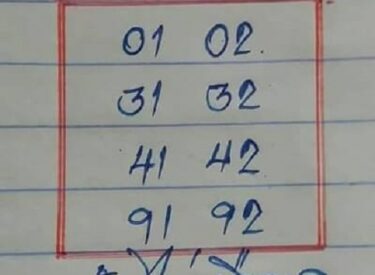 01 02
31 32
41 42
91 92